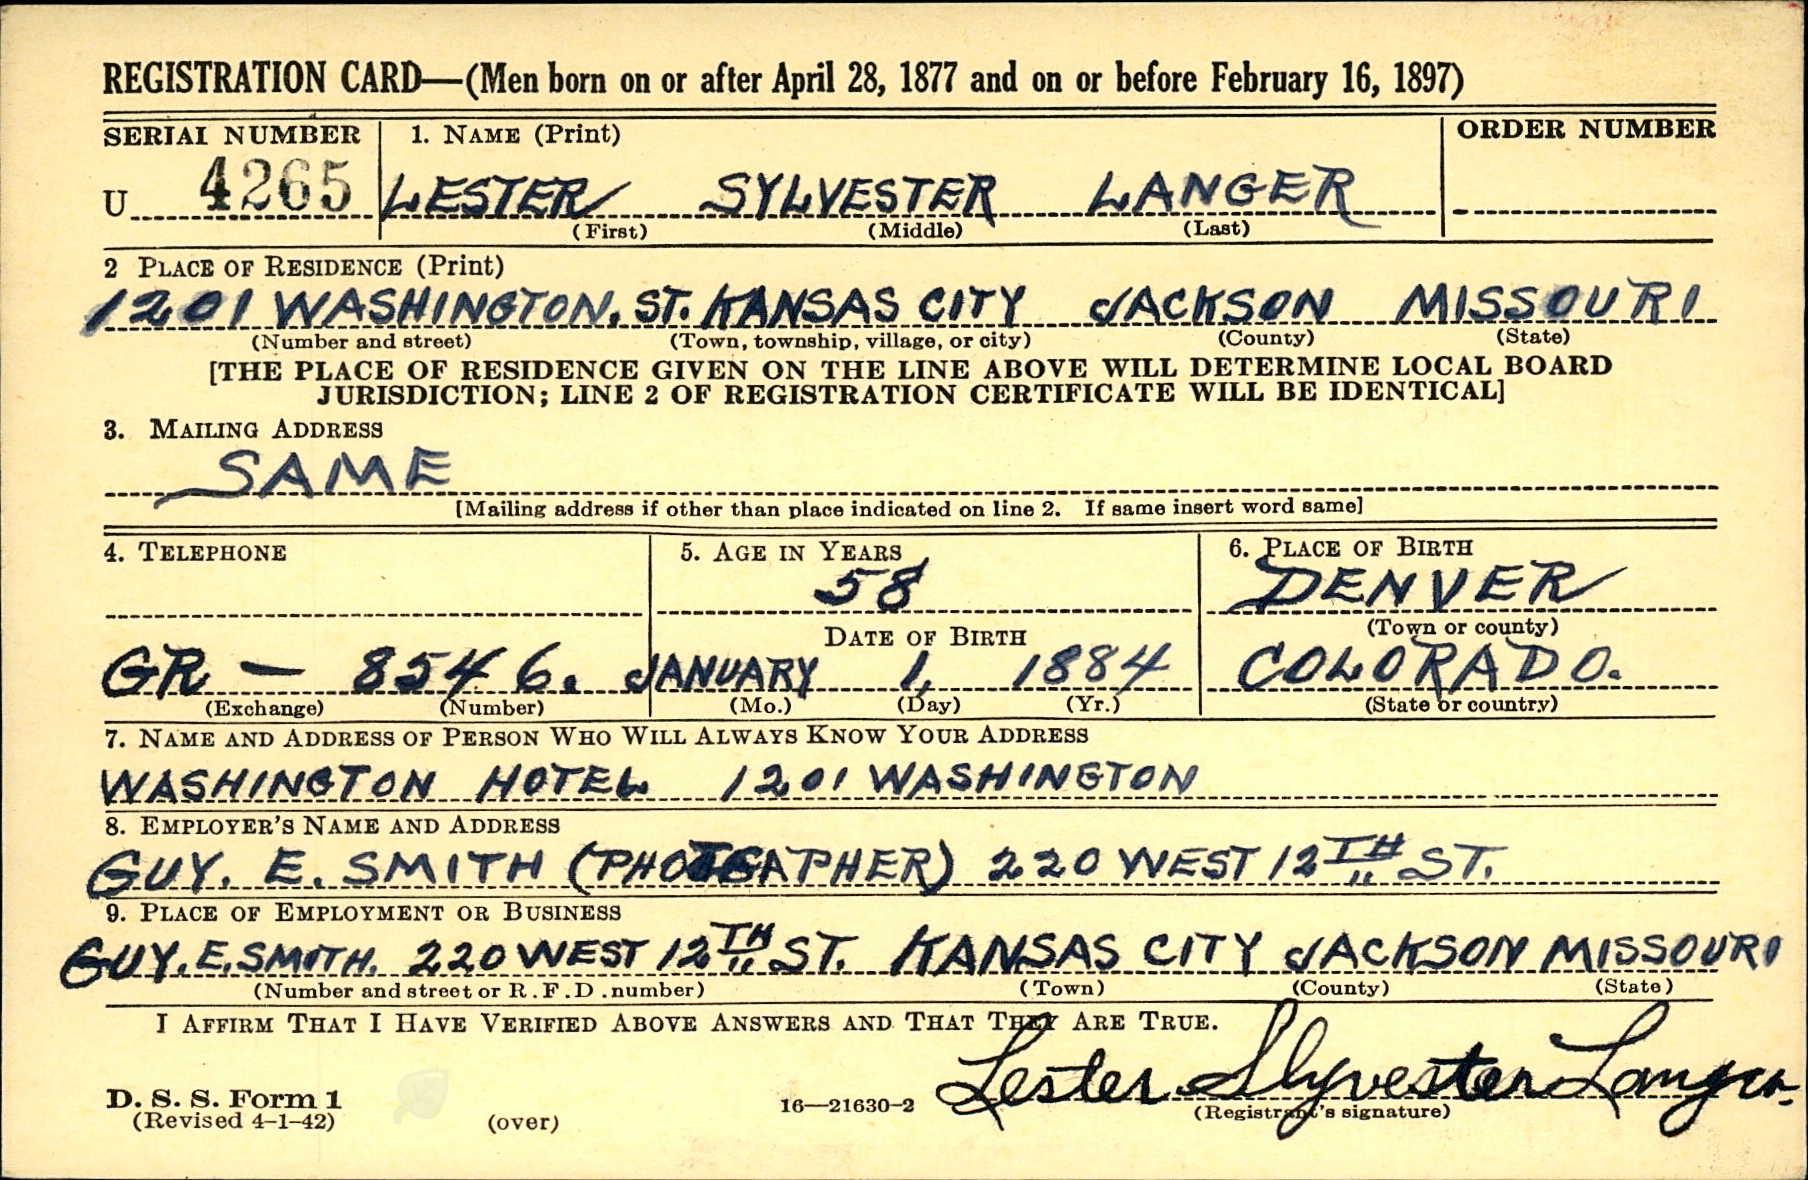 REGISTRATION CARD—(Men born on or after April 28, 1877 and on or before February 16, 1897)
SERIAL NUMBER 1. NAME (Print) ORDER NUMBER
U 4265 LESTER SYLVESTER LANGER
(First) (Middle) (Last)
2 PLACE OF RESIDENCE (Print)
1201 WASHINGTON. ST. KANSAS CITY JACKSON MISSOURI
(Number and street) (Town, township, village, or city) (County) (State)
[THE PLACE OF RESIDENCE GIVEN ON THE LINE ABOVE WILL DETERMINE LOCAL BOARD
JURISDICTION; LINE 2 OF REGISTRATION CERTIFICATE WILL BE IDENTICAL]
3. MAILING ADDRESS
SAME
[Mailing address if other than place indicated on line 2. If same insert word same]
4. TELEPHONE 5. AGE IN YEARS 6. PLACE OF BIRTH
58 DENVER
DATE OF BIRTH (Town or county)
GR — 8546. JANUARY 1, 1884 COLORADO.
(Exchange) (Number) (Mo.) (Day) (Yr.) (State or country)
7. NAME AND ADDRESS OF PERSON WHO WILL ALWAYS KNOW YOUR ADDRESS
WASHINGTON HOTEL 1201 WASHINGTON
8. EMPLOYER'S NAME AND ADDRESS
GUY. E. SMITH 220 WEST 12TH ST.
9. PLACE OF EMPLOYMENT OR BUSINESS
GUY. E. SMITH. 220 WEST 12TH ST. KANSAS CITY JACKSON MISSOURI
(Number and street or R.F.D. number) (Town) (County) (State)
I AFFIRM THAT I HAVE VERIFIED ABOVE ANSWERS AND THAT THEY ARE TRUE.
Lester Slyvester Langer.
D. S. S. Form 1 16—21630-2 (Registrant's signature)
(Revised 4-1-42) (over)